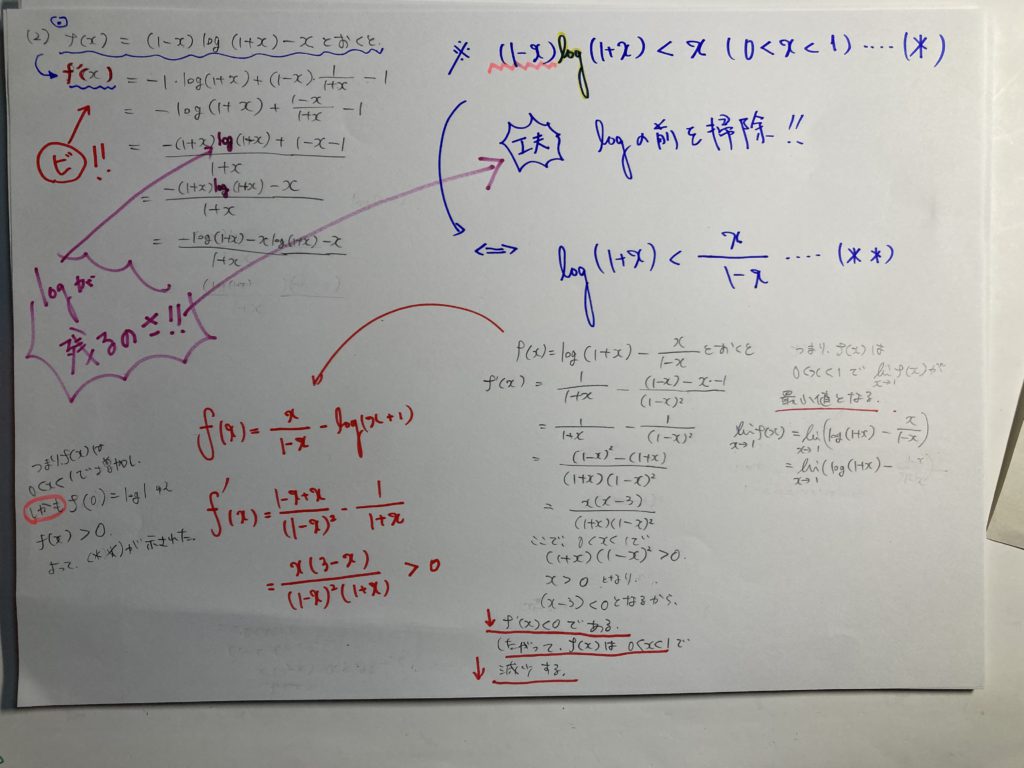 (2) f(x) = (1-x) log (1+x) - x とおくと、
f'(x) = -1・log(1+x) + (1-x)・1/(1+x) - 1
= -log(1+x) + (1-x)/(1+x) - 1
= (-(1+x) log(1+x) + 1-x-1)/(1+x)
= (-(1+x) log(1+x) - x)/(1+x)
= (-log(1+x) - x log(1+x) - x)/(1+x)
ビ!!
logが
残るのさ!!
※ (1-x) log (1+x) < x (0 < x < 1) ・・・・ (*)
工夫
logの前を掃除!!
⇔ log (1+x) < x/(1-x) ・・・・ (**)
f(x) = log (1+x) - x/(1-x) とおくと
f'(x) = 1/(1+x) - ((1-x) - x・-1)/(1-x)²
= 1/(1+x) - 1/(1-x)²
= ((1-x)² - (1+x))/((1+x)(1-x)²)
= x(x-3)/((1+x)(1-x)²)
ここで、0<x<1で
(1+x)(1-x)² > 0.
x > 0 となり、
(x-3) < 0 となるから、
f'(x) < 0 である.
したがって、f(x)は 0<x<1で
減少する.
つまり、f(x)は
0<x<1で lim x→1 f(x)が
最小値となる.
lim x→1 f(x) = lim x→1 (log(1+x) - x/(1-x))
= lim x→1 (log(1+x) -
f(x) = x/(1-x) - log(x+1)
f'(x) = (1-x+x)/(1-x)² - 1/(1+x)
= x(3-x)/((1-x)²(1+x)) > 0
つまりf(x)は
0<x<1で増加し
しかも f(0) = log1
f(x) > 0.
よって、(**)が示された.